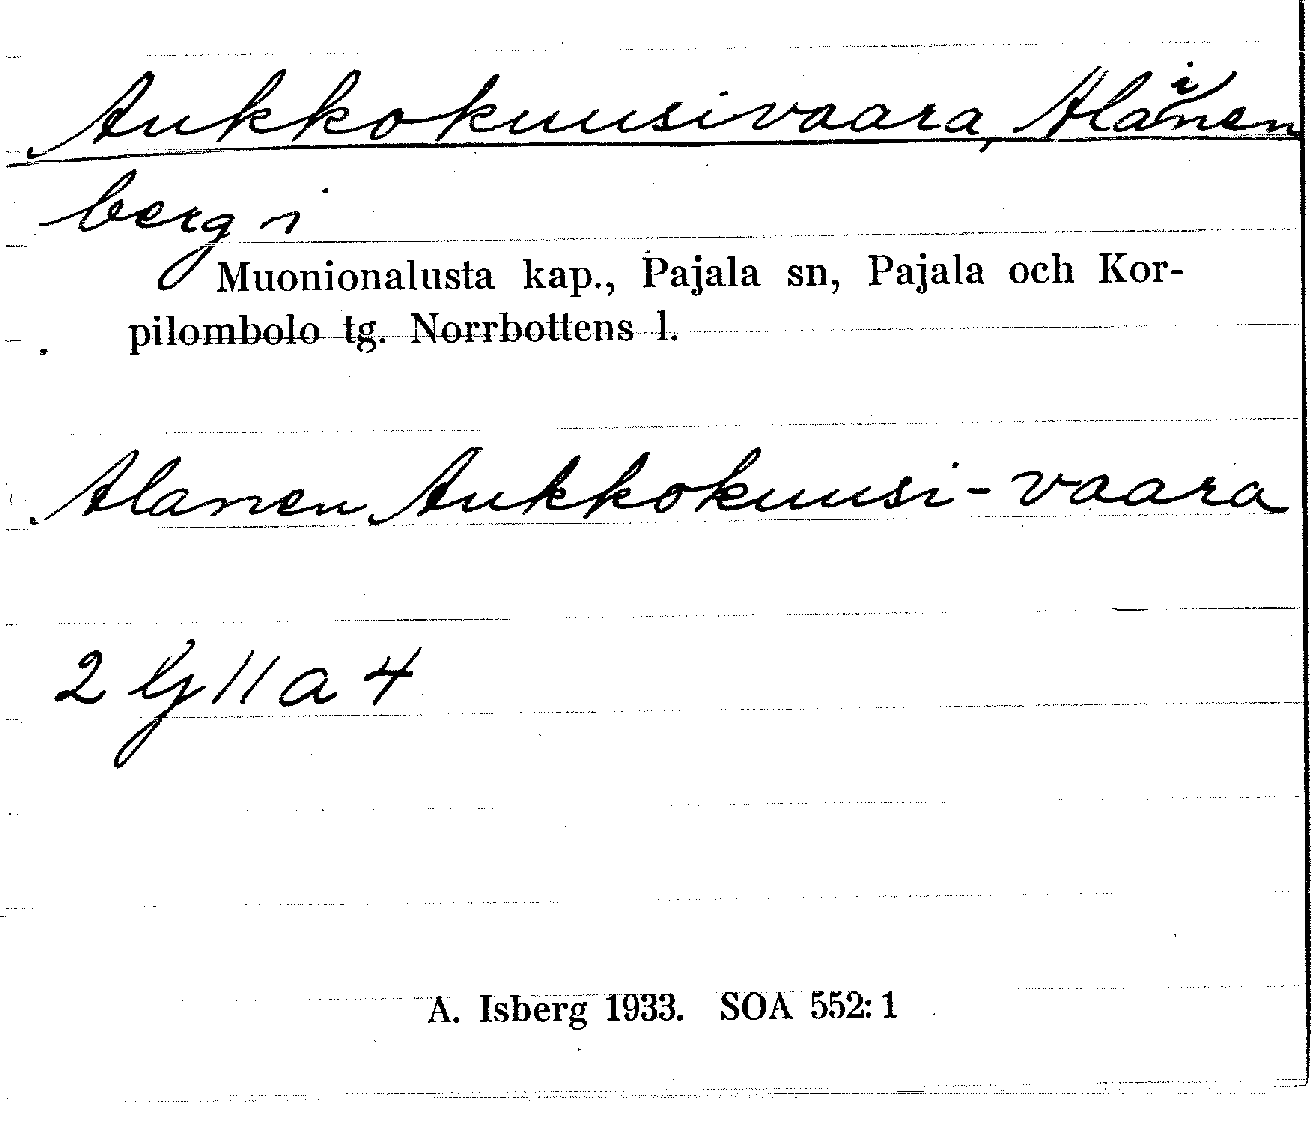 Aukkokuusivaara, Alainen
berg i
Muonionalusta kap., Pajala sn, Pajala och Kor-
pilombolo tg. Norrbottens l.
Alanen Aukkokuusi-vaara
2 lj 11 a 4
A. Isberg 1933. SOA 552:1